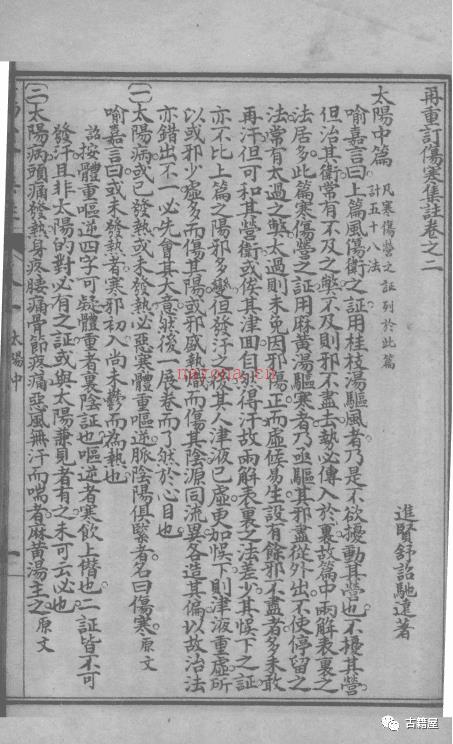 再重訂傷寒集註卷之二
進賢舒詔馳遠著
太陽中篇 凡寒傷營之証列於此篇
計五十八法
喻嘉言曰上篇風傷衛之証用桂枝湯驅風者乃是不欲擾動其營也不擾其營
但治其衛常有不及之弊不及則邪不盡去勢必傳入於裏故篇中兩解表裏之
法居多此篇寒傷營之証用麻黃湯驅寒者乃亟驅其邪盡從外出不使停留之
法常有太過之弊太過則未免因邪傷正而虛候易生設有餘邪不盡者多未敢
再汗但可和其營衛或俟其津回自然得汗故兩解表裏之法差少其悞下之証
亦不比上篇之陽邪多變但發汗之後其人津液已虛更加悞下則津液重虛所
以或邪少虛多而傷其陽或邪盛熱熾而傷其陰源同流異各造其偏以故治法
亦錯出不一必先會其大意然後一展卷而了然於心目也
(一)太陽病或已發熱或未發熱必惡寒體重嘔逆脈陰陽俱緊者名曰傷寒原文
喻嘉言曰或未發熱者寒邪初入尚未鬱而為熱也
詔按體重嘔逆四字可疑體重者裏陰証也嘔逆者寒飲上僭也二証皆不可
發汗且非太陽的對必有之証或與太陽兼見者有之未可云必也
(二)太陽病頭痛發熱身疼腰痛骨節疼痛惡風無汗而喘者麻黃湯主之原文
太陽中
一
nayona.cn
古籍屋